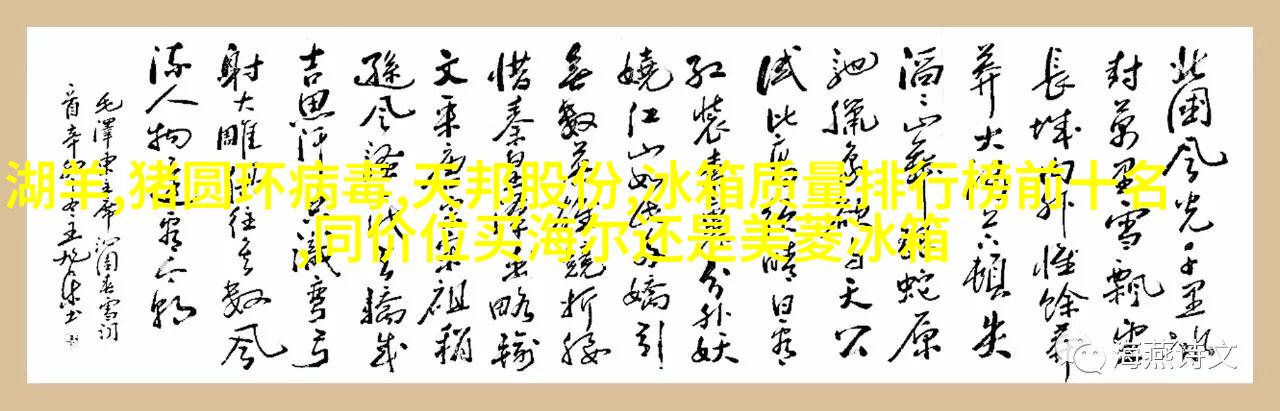 湖羊,猪圆环病毒,天邦股份,冰箱质量排行榜前十名
,同价位买海尔还是美菱冰箱
北國风光千里冰
封萬里雪飄望
長城内外惟餘莽
莽大河上下頓失
滔滔山舞银蛇原
馳臘象欲与天公
試比高须晴日看
红装素裹分外妖
嬈江山如此多嬌引
無數英雄競折腰
惜秦皇漢武略輸
文采唐宗宋祖稍
遜风骚一代天驕成
吉思汗只識彎弓
射大雕俱往矣數风
流人物还看今朝
毛澤東主席沁園春雪词
海燕诗文